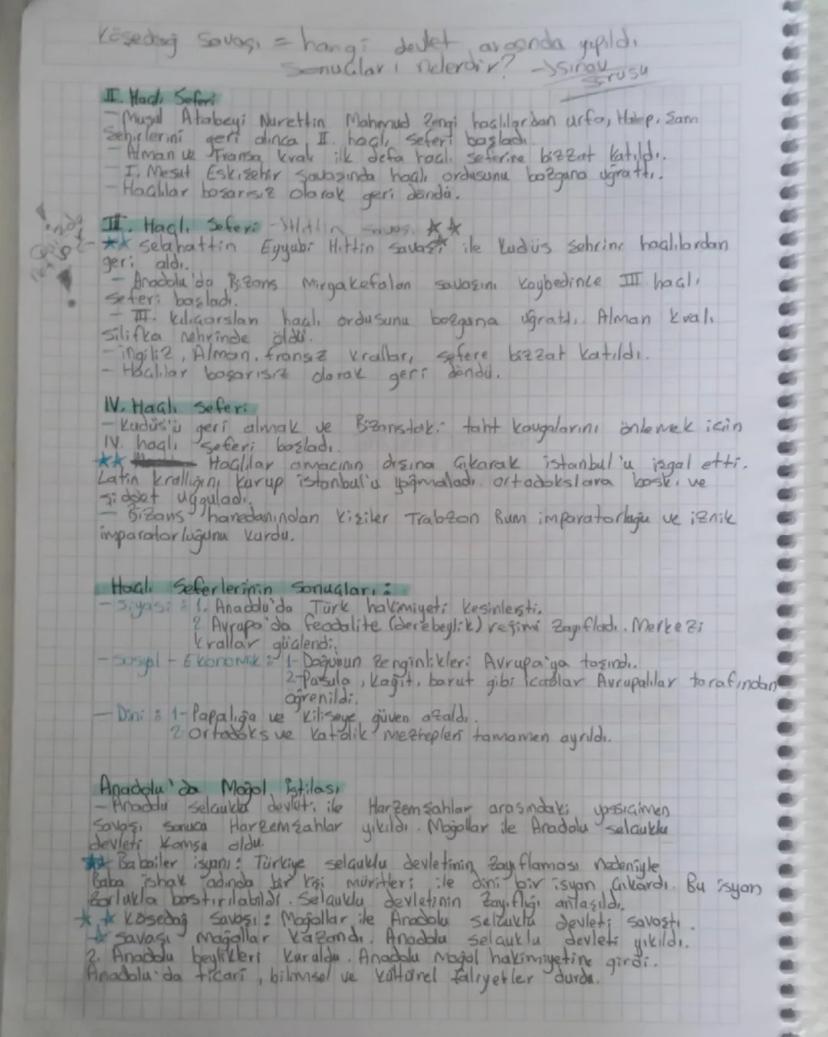 Kösedağ savaşı = hangi devlet arasında yapıldı
sonuçları nelerdir? →sınav
srusu
II. Haçlı Seferi
- Musul Atabeyi Nurettin Mahmud Zengi haçlılardan urfa, Halep, Şam
Şehirlerini geri alınca II. haçlı seferi başladı.
- Alman ve Fransa kralı ilk defa haçlı seferine bizzat katıldı.
- I. Mesut Eskişehir savaşında haçlı ordusunu bozguna uğrattı.
- Haçlılar başarısız olarak geri döndü.
III. Haçlı Seferi - Hittin savaşı
selahattin Eyyubi Hittin savaşı ile Kudüs şehrini haçlılardan
geri aldı.
- Anadolu'da Bizans Miryakefalon savaşını kaybedince III haçlı
seferi başladı.
- II. kılıçarslan haçlı ordusunu bozguna uğrattı. Alman kralı
silifke nehrinde öldü.
- ingiliz, Alman, fransız kralları, sefere bizzat katıldı.
- Haçlılar başarısız olarak geri döndü.
IV. Haçlı seferi
- Kudüs'ü geri almak ve Bizanstaki taht kavgalarını önlemek için
IV. haçlı seferi başladı.
Haçlılar amacının dışına çıkarak istanbul'u işgal etti.
Latin krallığını kurup istanbul'u yağmaladı. ortadokslara baskı ve
şiddet uyguladı.
- Bizans hanedanından kişiler Trabzon Rum imparatorluğu ve iznik
imparatorluğunu kurdu.
Haçlı Seferlerinin Sonuçları:
- Siyasi: 1. Anadolu'da Türk hakimiyeti kesinleşti.
2 Avrupa'da feodalite (derebeylik) rejimi zayıfladı. Merkezi
krallar güçlendi.
- Sosyal - Ekonomik: 1- Doğunun zenginlikleri Avrupa'ya taşındı.
2- Pusula, kağıt, barut gibi icadlar Avrupalılar tarafından
öğrenildi.
- Dini: 1- Papalığa ve kiliseye güven azaldı.
2 Ortadoks ve katolik mezhepleri tamamen ayrıldı.
Anadolu'da Moğol istilası
- Anadolu selçuklu devleti ile Harzemşahlar arasındaki yassıçimen
savaşı sonucu Harzemşahlar yıkıldı. Moğollar ile Anadolu selçuklu
devleti komşu oldu.
Babailer isyanı: Türkiye selçuklu devletinin zayıflaması nedeniyle
Baba ishak adında bir kişi müritleri ile dini bir isyan çıkardı. Bu isyan
zorlukla bastırılabildi. Selçuklu devletinin zayıflığı anlaşıldı.
kösedağ savaşı: Moğollar ile Anadolu selçuklu devleti savaştı.
savaşı moğollar kazandı. Anadolu selçuklu devleti yıkıldı.
2. Anadolu beylikleri kuruldu. Anadolu Moğol hakimiyetine girdi.
Anadolu'da ticari, bilimsel ve kültürel faliyetler durdu.